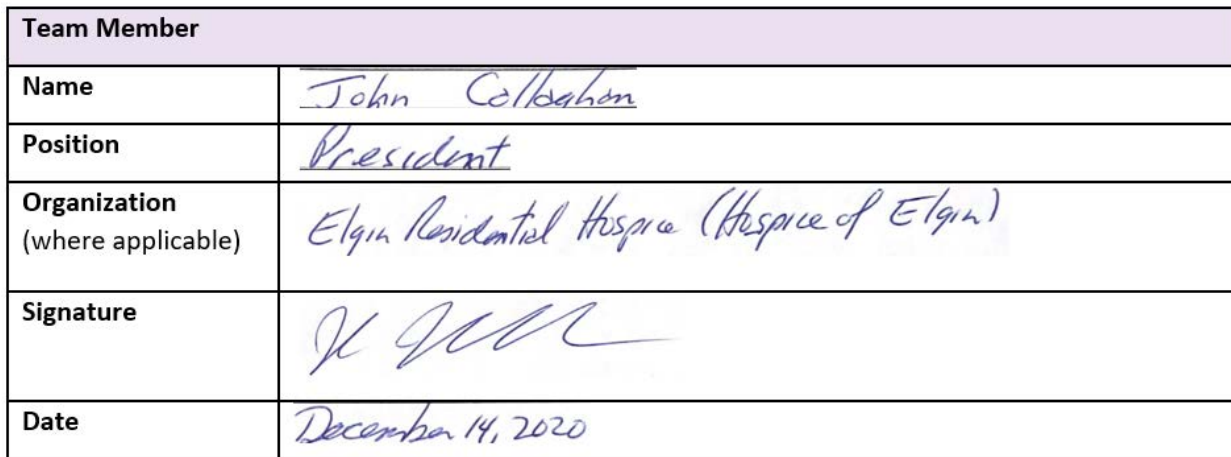 Team Member
Name John Callaghan
Position President
Organization
(where applicable) Elgin Residential Hospice (Hospice of Elgin)
Signature
Date December 14, 2020